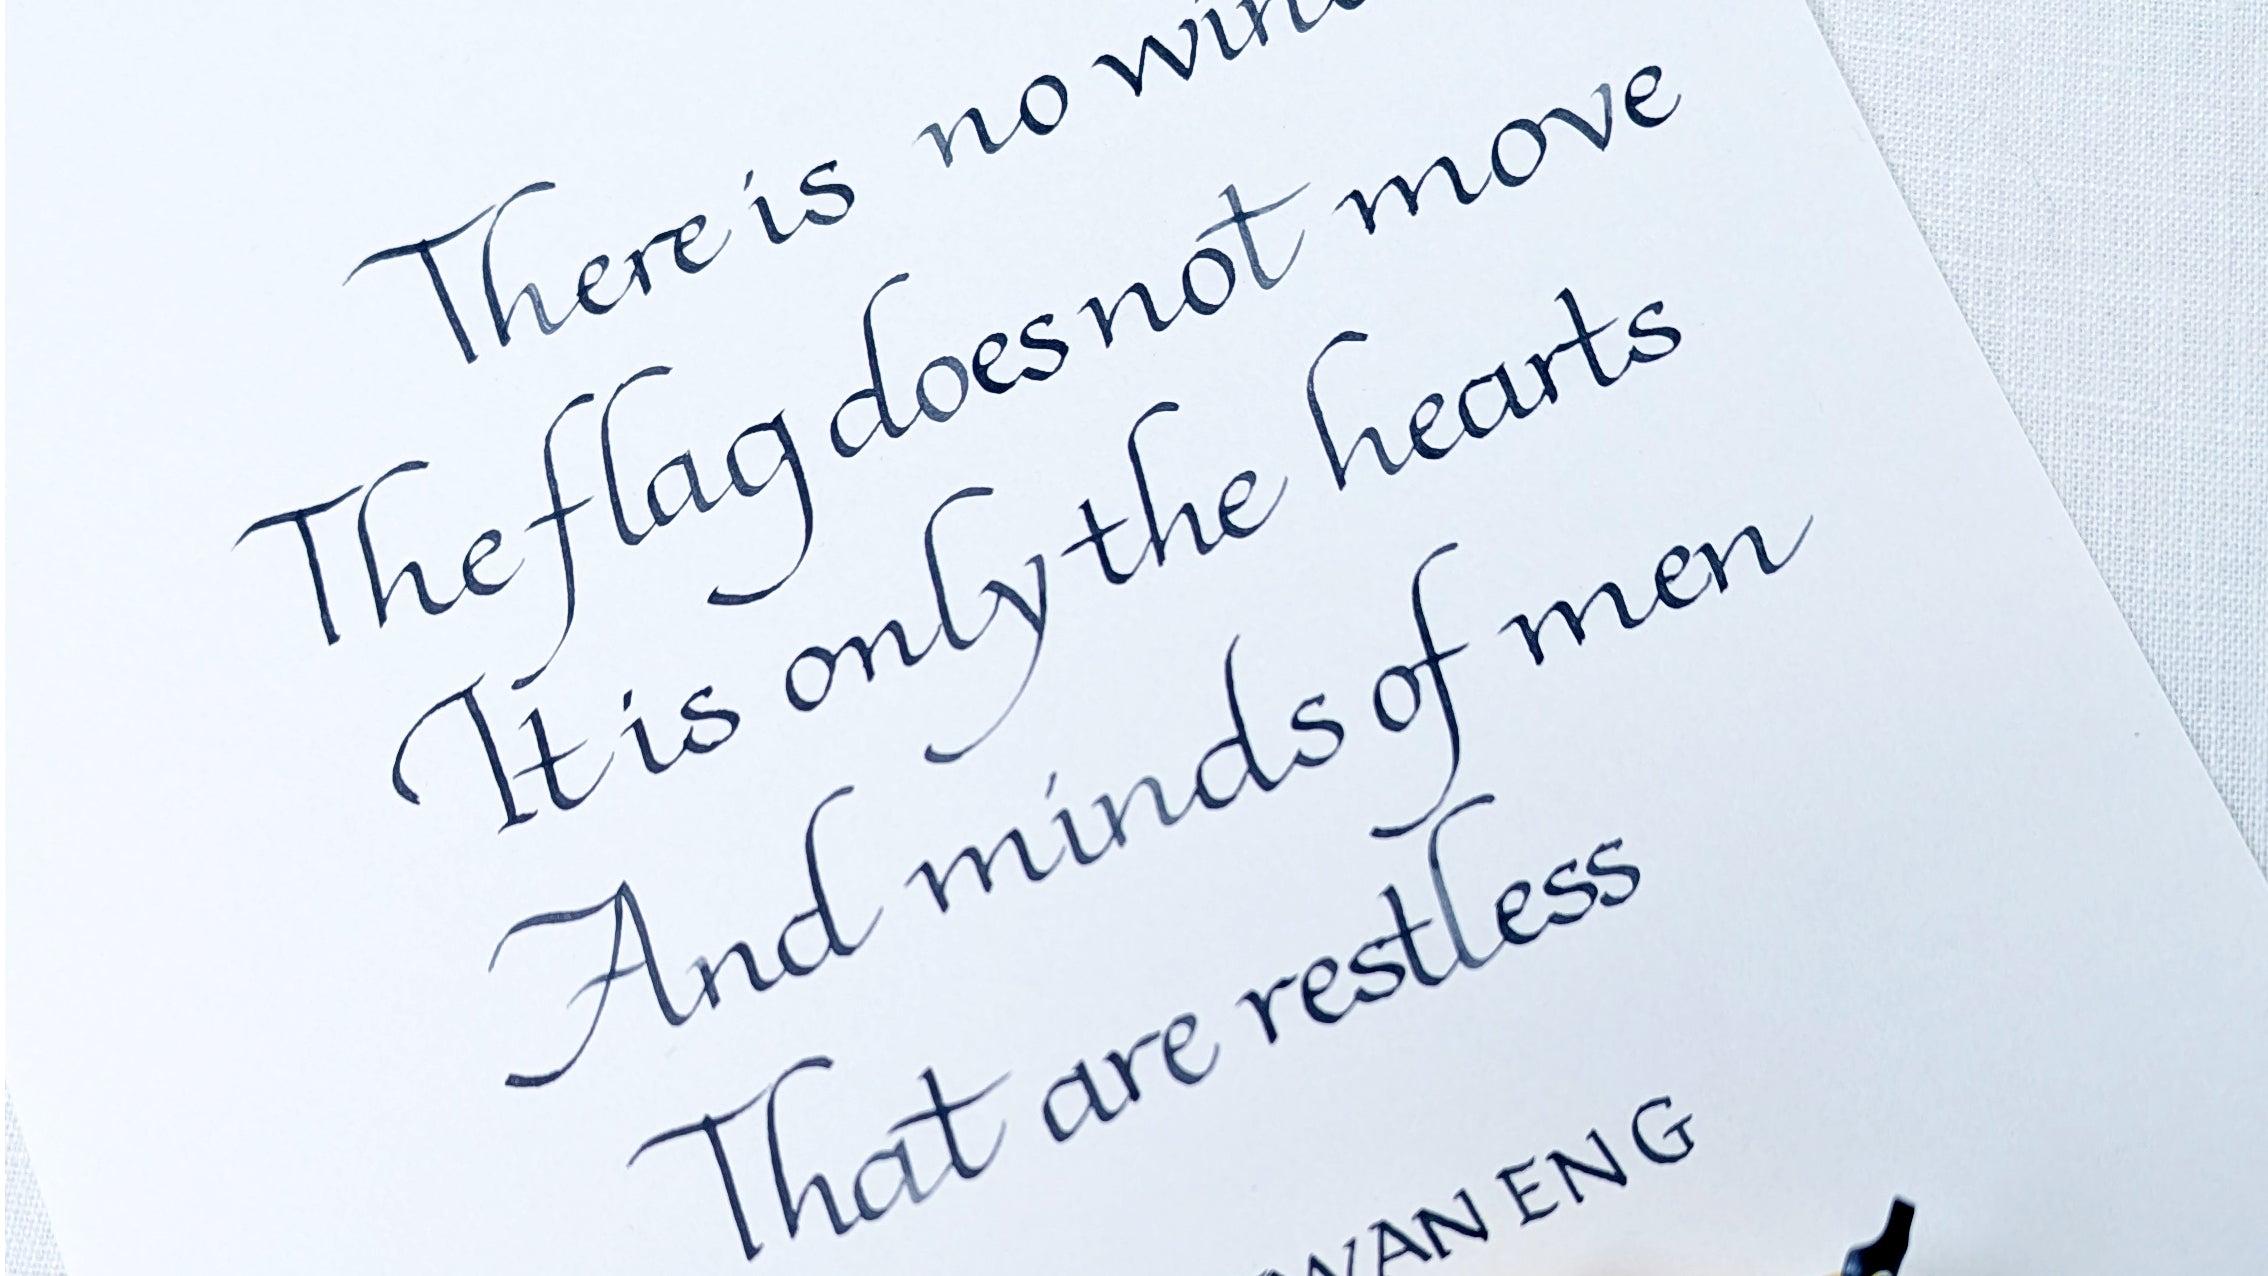 There is no wind
The flag does not move
It is only the hearts
And minds of men
That are restless
WAN ENG